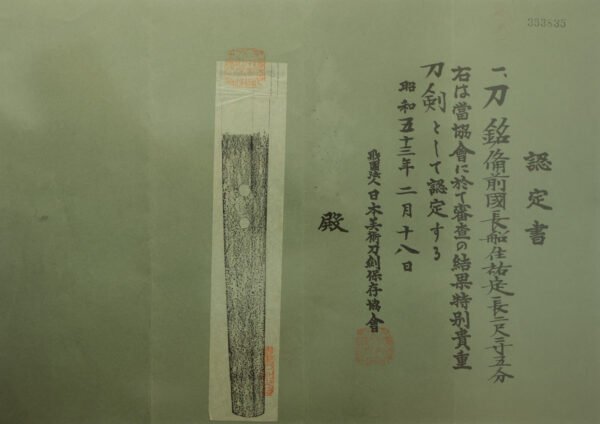 353835
認定書
一、刀 銘備前國長船住祐定 長二尺二寸五分
右は當協會に於て審査の結果特別貴重
刀剣として認定する
昭和五十三年二月十八日
財團法人日本美術刀剣保存協會
殿